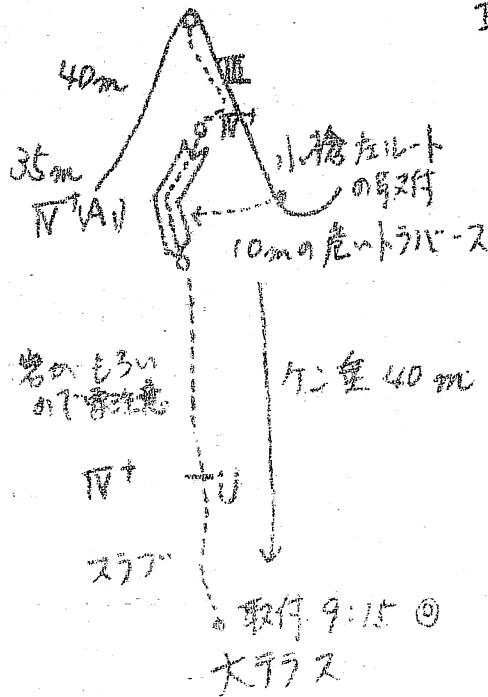 40m
III
IV+
35m
IV+(A1)
小槍左ルート
の取付
10mの悪いトラバース
岩がもろい
ので要注意
ケン垂 40m
IV+
スラブ
取付 9:15 ◎
大テラス